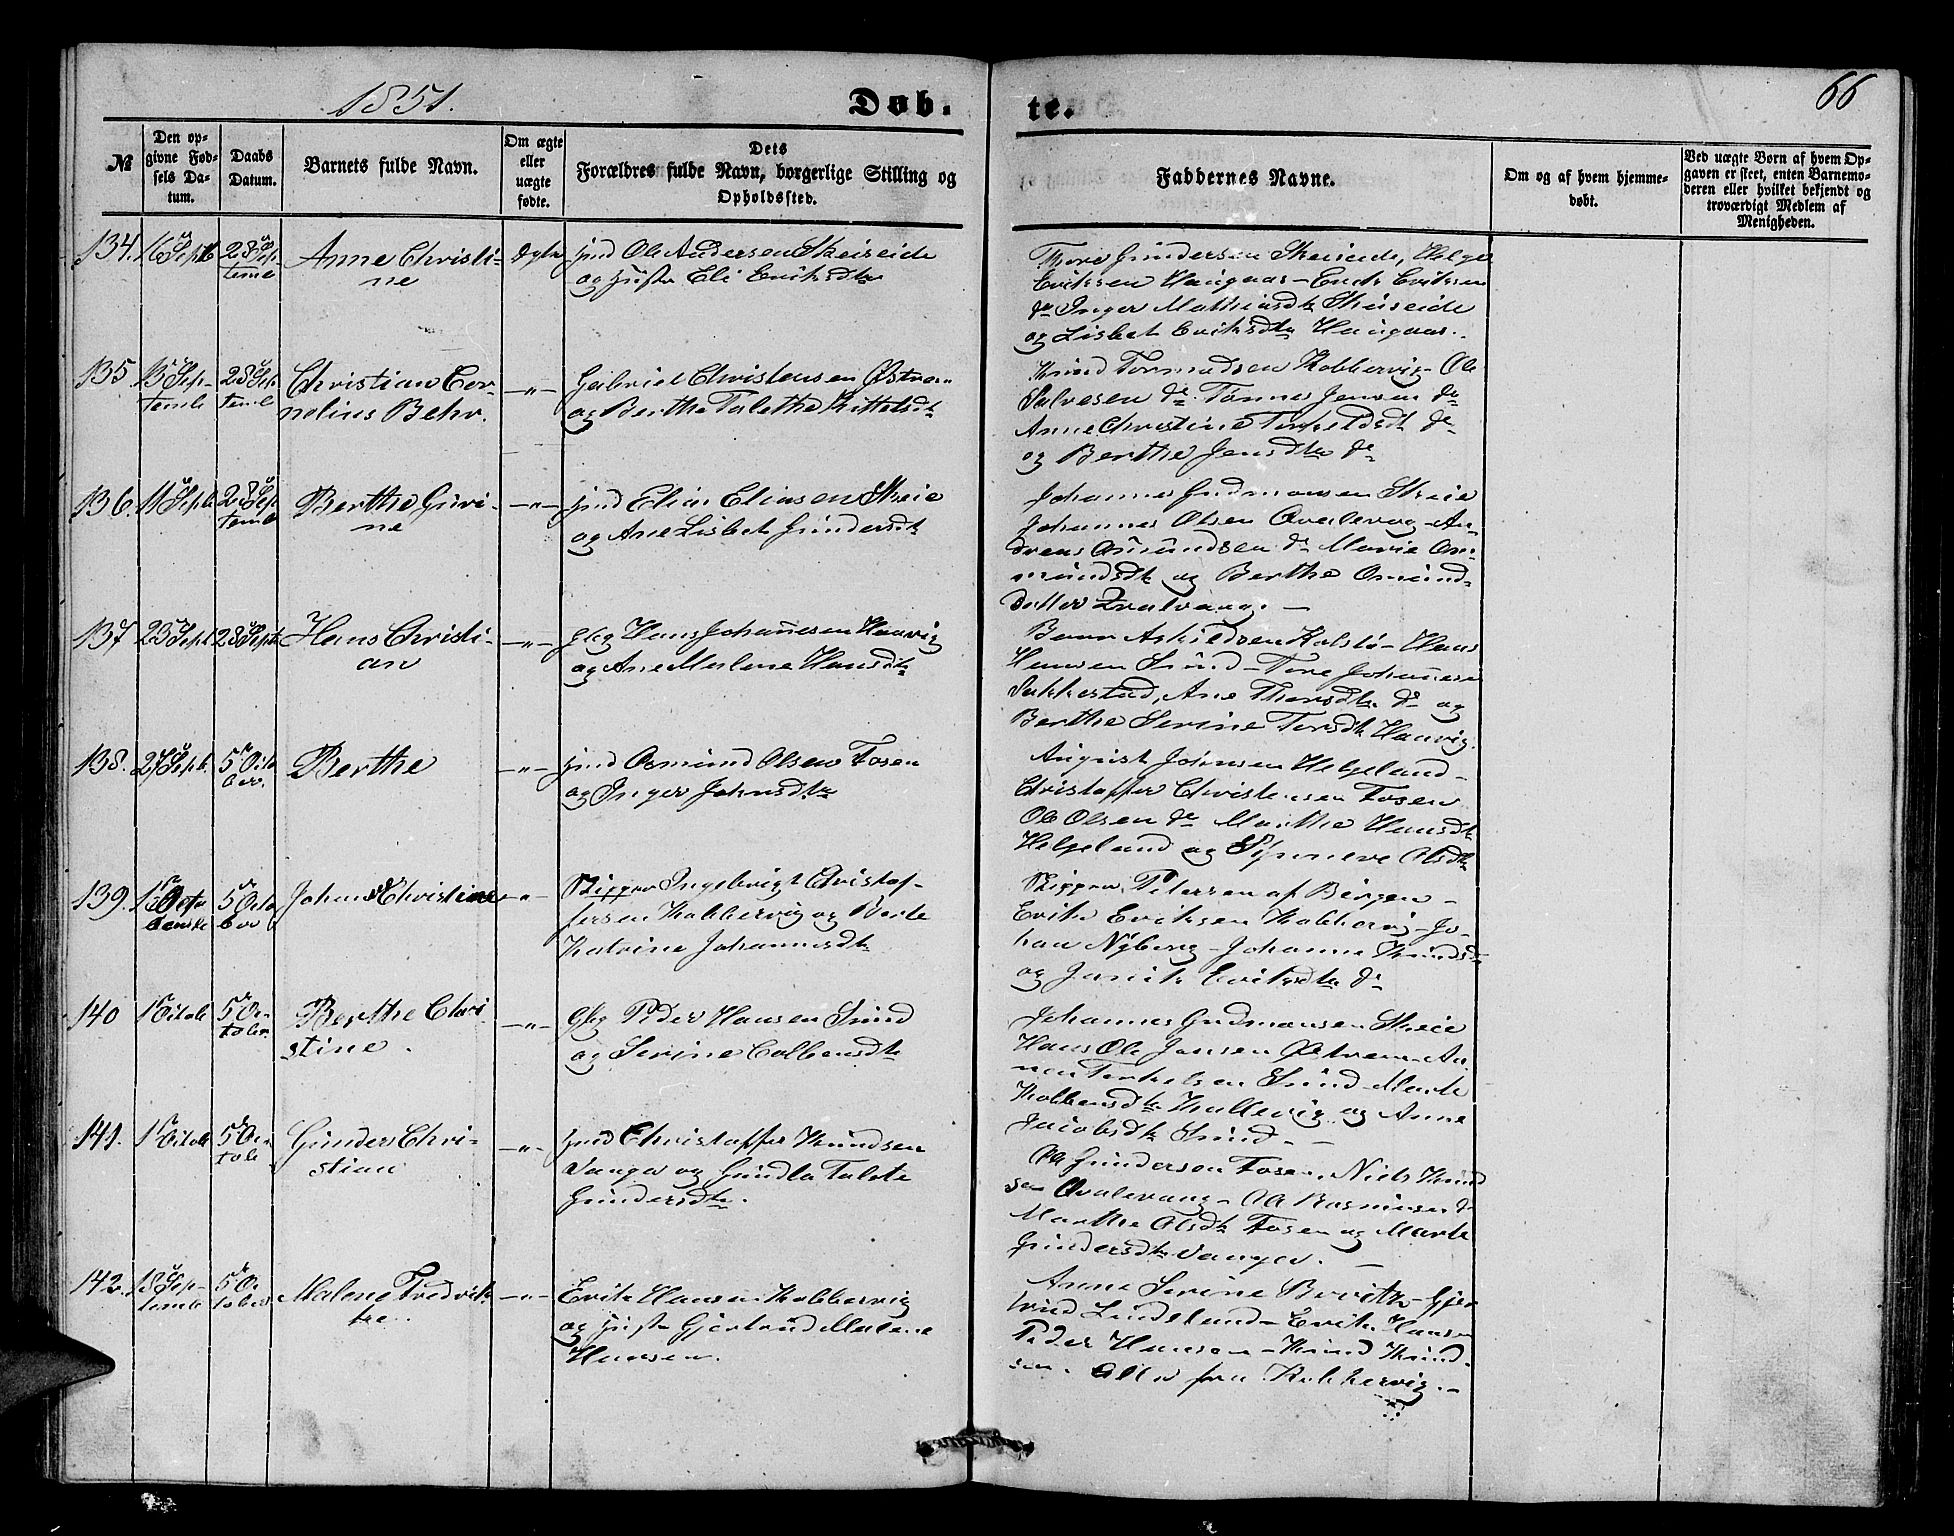 1851.
Døb-
te.
66
№
Den op-
givne Fød-
sels Da-
tum.
Daabs
Datum.
Barnets fulde Navn.
Om ægte
eller
uægte
fødte.
Dets
Forældres fulde Navn, borgerlige Stilling og
Opholdssted.
Faddernes Navne.
Om og af hvem hjemme-
døbt.
Ved uægte Børn af hvem Op-
gaven er skeet, enten Barnemo-
deren eller hvilket bekjendt og
troværdigt Medlem af
Menigheden.
134. 16 Sept 28 Sep-
temb
Anne Christi-
ne
Ægte
Gmd Ole Andersen Skeiseide
og Hust Eli Eriksdtr
Thore Gundersen Skeiseide, Helge
Eriksen Haugaas - Erik Eriksen
do Inger Mathiasdtr Skeiseide
og Lisbet Eriksdtr Haugaas.
135. 15 Sep-
temb
28 Sep
temb
Christian Cor-
nelius Behr.
-"-
Gabriel Christensen Østrem
og Berthe Talethe Kittelsdtr
Knud Tormodsen Kobbervig - Ole
Salvesen do Tønnes Jensen do
Anne Christine Torkeldsdtr do
og Berthe Jensdtr do
136. 11 Septb 28 Sep
temb
Berthe Guri-
ne
-"-
Gmd Elias Eliasen Skeie
og Ane Lisbet Gundersdtr
Johannes Gudmonsen Skeie
Johannes Olsen Qvalevog - An-
dreas Osmundsen do Marie Os-
mundsdtr og Berthe Osmund-
datter Qvalvaag. -
137 23 Sept 28 Septb
Hans Christi-
an
-"-
Hans Johannesen Haavig
og Ane Malene Hansdtr
Askildsen Kolstø - Hans
Hansen Sund - Tore Johannesen
Sakkestad, Ane Thorsdtr do og
Berthe Serine Torsdtr Haavig.
138. 27 Septb. 5 Octo
ber.
Berthe
-"-
Gmd Osmund Olsen Fosen
og Inger Johnsdtr
August Johnsen Helgeland -
Christoffer Christensen Fosen
Ole Olsen do Marthe Hansdtr
Helgeland og Synneve Olsdtr
139. 5 Octo
ber
Johan Christine
-"-
Skipper Ingebrigt Christof-
fersen Kobbervig og Berte
Katrine Johannesdtr
Skipper Petersen af Bergen -
Erik Eriksen Kobbervig - Jo-
han Nyberg - Johanne Knudsdtr
og Janike Eriksdtr do
140 1 Octob 5 Oc-
tober
Berthe Chri
stine.
-"-
Peder Hansen Sund
og Serine Colbensdtr
Johannes Gudmonsen Skeie
Hans Ole Jansen Østrem An-
Torkelsen Sund Marte
Kolbensdtr Kallevig og Anne
Jacobsdtr Sund -
141. 1 Octob 5 Oc-
tob
Gunder Chri-
stian
-"-
Gmd Christoffer Knudsen
Vanger og Gundla Talete
Gundersdtr.
Ole Gundersen Fosen, Niels Knud
sen Qvalevaag - Ole Rasmusen do
Marthe Olsdtr Fosen og Marte
Gundersdtr Vanger. -
142. 18 Sep-
temb
5 Oc
tober
Malene Fredrik-
ke.
-"-
Erik Hansen Kobbervig
og Hust Gjertrud Malene
Hansen.
Anne Serine Bervith - Gjer
trud Lindeland - Erik Hansen
Peder Hansen - Knud Knud-
sen. Alle fra Kobbervig. -